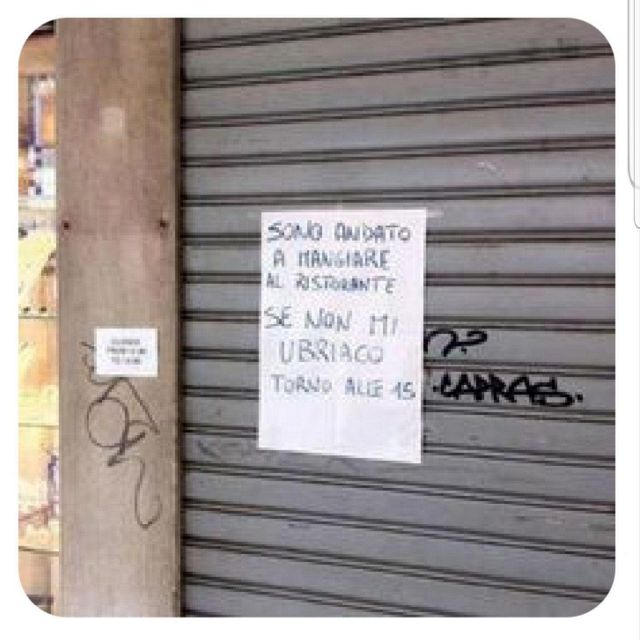 SONO ANDATO
A MANGIARE
AL RISTORANTE
SE NON MI
UBRIACO
TORNO ALLE 15
CAPRAS.